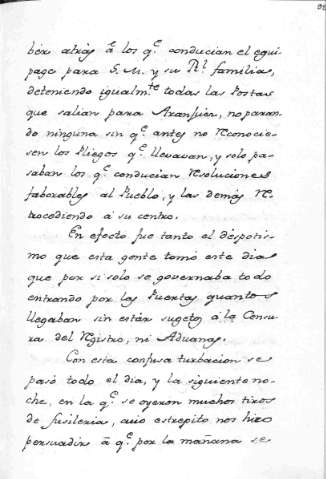 ber atrás á los q.e conducian el equi-
page para S. M. y su R.l familia,
deteniendo igualm.te todas las Postas
que salian para Aranjuez, no paran-
do ninguna sin q.e antes no reconocie-
sen los Pliegos q.e llevavan, y solo pa-
saban los q.e conducian resoluciones
faborables al Pueblo, y las demás re-
trocediendo á su centro.
En efecto fue tanto el despotis-
mo que esta gente tomó este dia
que por si solo se governaba todo
entrando por las Puertas quantos
llegaban sin estár sugetos á la Censu-
ra del Registro, ni Aduanas.
Con esta confusa turbacion se
pasó todo el dia, y la siguiente no-
che, en la q.e se oyeron muchos tiros
de fusileria, cuio estrepito nos hizo
persuadir á q.e por la mañana se